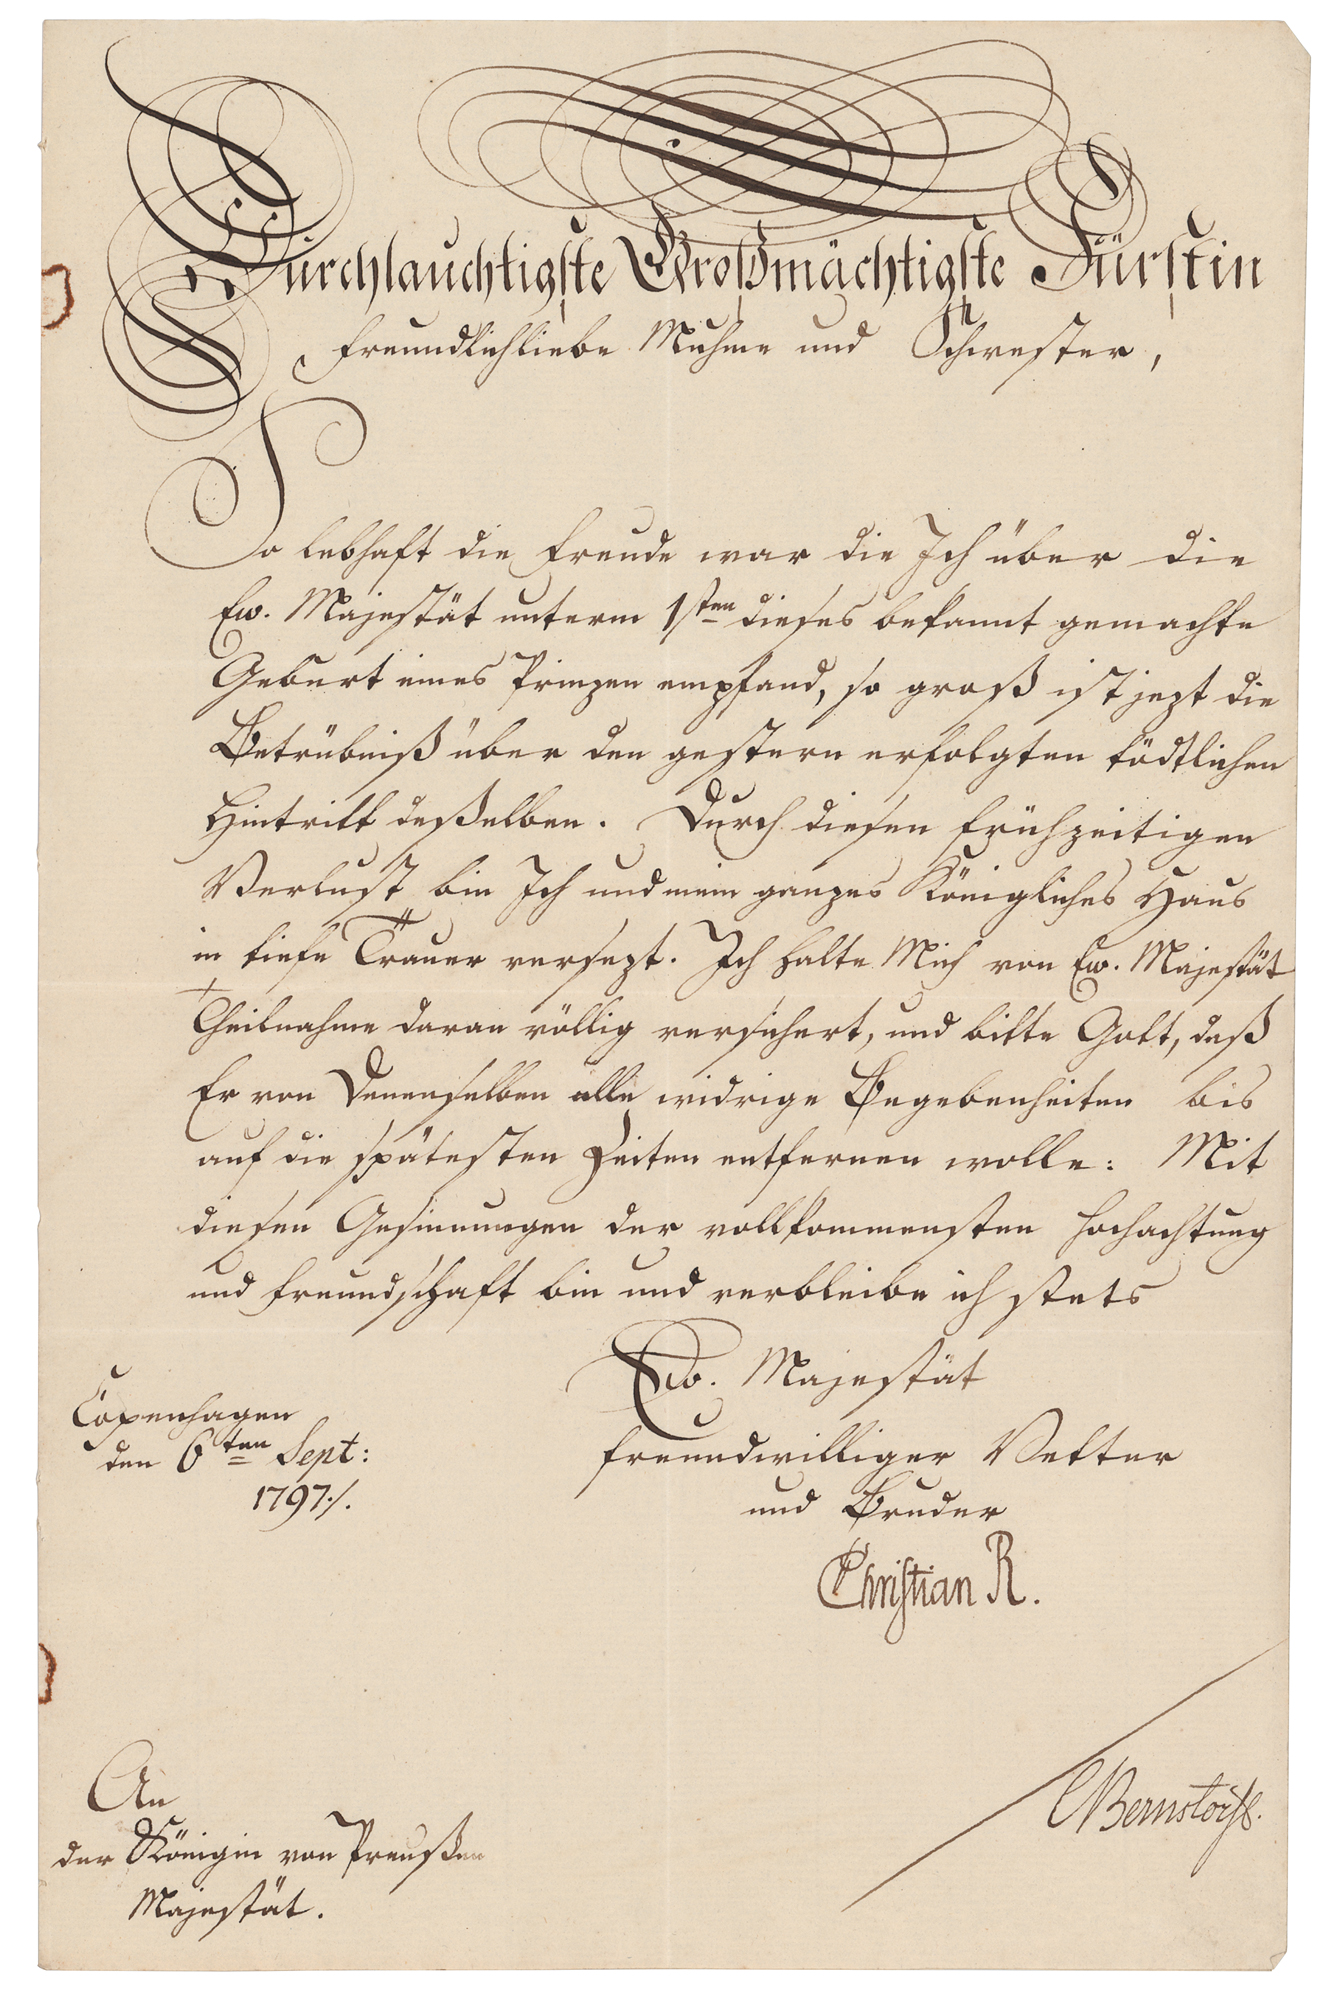 Durchlauchtigste Großmächtigste Fürstin
freundlichliebe Muhme und Schwester,
So lebhaft die Freude war die Ich über die
Ew. Majestät unterm 1sten dieses bekannt gemachte
Geburt eines Prinzen empfand, so groß ist jezt die
Betrübniß über den gestern erfolgten tödtlichen
Hintritt deßelben. Durch diesen frühzeitigen
Verlust bin Ich und mein ganzes Königliches Haus
in tiefe Trauer versezt. Ich halte Mich von Ew. Majestät
Theilnahme daran völlig versichert, und bitte Gott, daß
Er von Denenselben alle widrige Begebenheiten bis
auf die spätesten Zeiten entfernen wolle: Mit
diesen Gesinnungen der vollkommensten Hochachtung
und Freundschaft bin und verbleibe ich stets
Ew. Majestät
freundwilliger Vetter
und Bruder
Christian R.
Copenhagen
den 6ten Sept:
1797./.
CBernstorff.
An
der Königin von Preußen
Majestät.